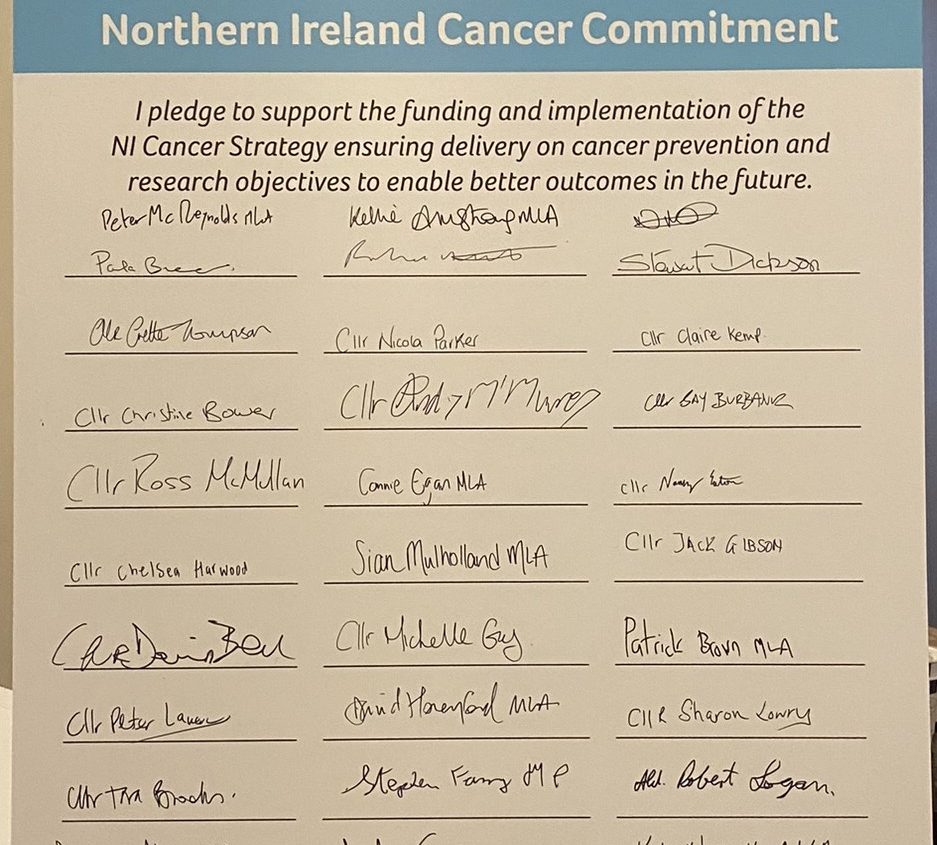 Northern Ireland Cancer Commitment
I pledge to support the funding and implementation of the
NI Cancer Strategy ensuring delivery on cancer prevention and
research objectives to enable better outcomes in the future.
Peter McReynolds MLA Kellie Armstrong MLA
Stewart Dickson
Thompson Cllr Nicola Parker Cllr Claire Kemp
Cllr Christine Bower Cllr Andy McMurray Cllr GAY BURBANK
Cllr Ross McMullan Connie Egan MLA Cllr Nancy Eaton
Cllr Chelsea Harwood Sian Mulholland MLA Cllr JACK GIBSON
Cllr Michelle Guy Patrick Brown MLA
Cllr Peter David Honeyford MLA CllR Sharon Lowry
Cllr Stephen Farry MP Ald. Robert Logan.